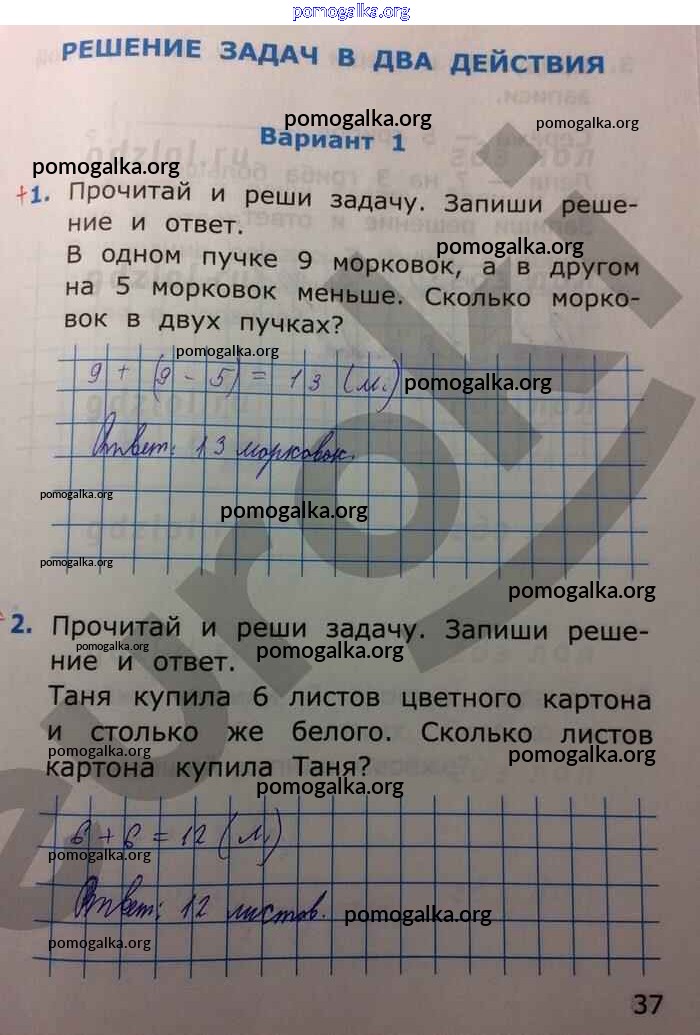 pomogalka.org
РЕШЕНИЕ ЗАДАЧ В ДВА ДЕЙСТВИЯ
pomogalka.org
pomogalka.org
Вариант 1
pomogalka.org
+1. Прочитай и реши задачу. Запиши реше-
ние и ответ.
pomogalka.org
В одном пучке 9 морковок, а в другом
на 5 морковок меньше. Сколько морко-
вок в двух пучках?
pomogalka.org
9 + (9 - 5) = 13 (м.)
pomogalka.org
Ответ: 13 морковок.
pomogalka.org
pomogalka.org
pomogalka.org
pomogalka.org
2. Прочитай и реши задачу. Запиши реше-
pomogalka.org
pomogalka.org
ние и ответ.
Таня купила 6 листов цветного картона
и столько же белого. Сколько листов
pomogalka.org
pomogalka.org
картона купила Таня?
pomogalka.org
6 + 6 = 12 (л.)
pomogalka.org
Ответ: 12 листов.
pomogalka.org
pomogalka.org
37
euroki